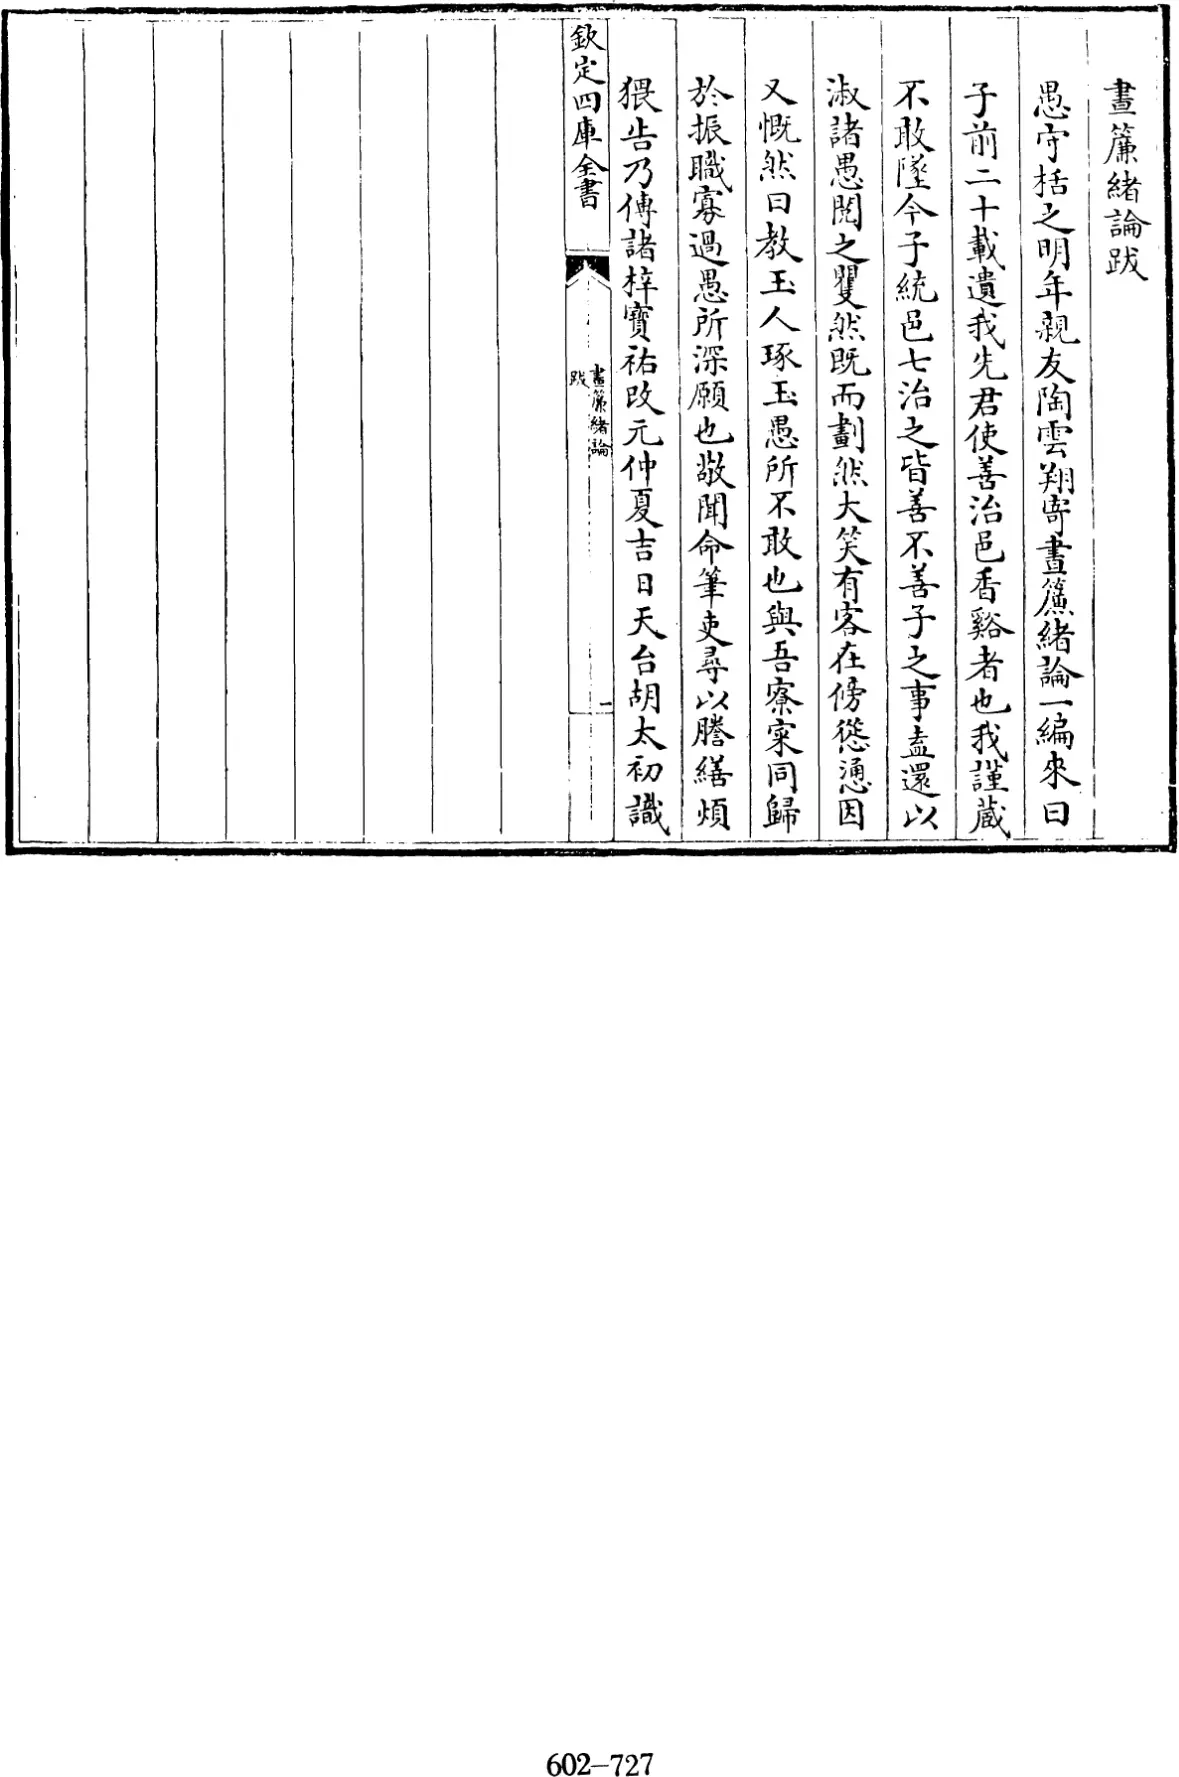 晝簾緒論跋
愚守括之明年親友陶雲翔寄晝簾緒論一編來曰
子前二十載遺我先君使善治邑香谿者也我謹蔵
不敢墜今子統邑七治之皆善不善子之事盍還以
淑諸愚閱之瞿然既而劃然大笑有客在傍慫慂因
又慨然曰教玉人琢玉愚所不敢也與吾寮寀同歸
於振職寡過愚所深願也敬聞命筆吏尋以謄繕煩
猥告乃傳諸梓寶祐改元仲夏吉日天台胡太初識
欽定四庫全書
晝簾緒論
跋
一
602-727